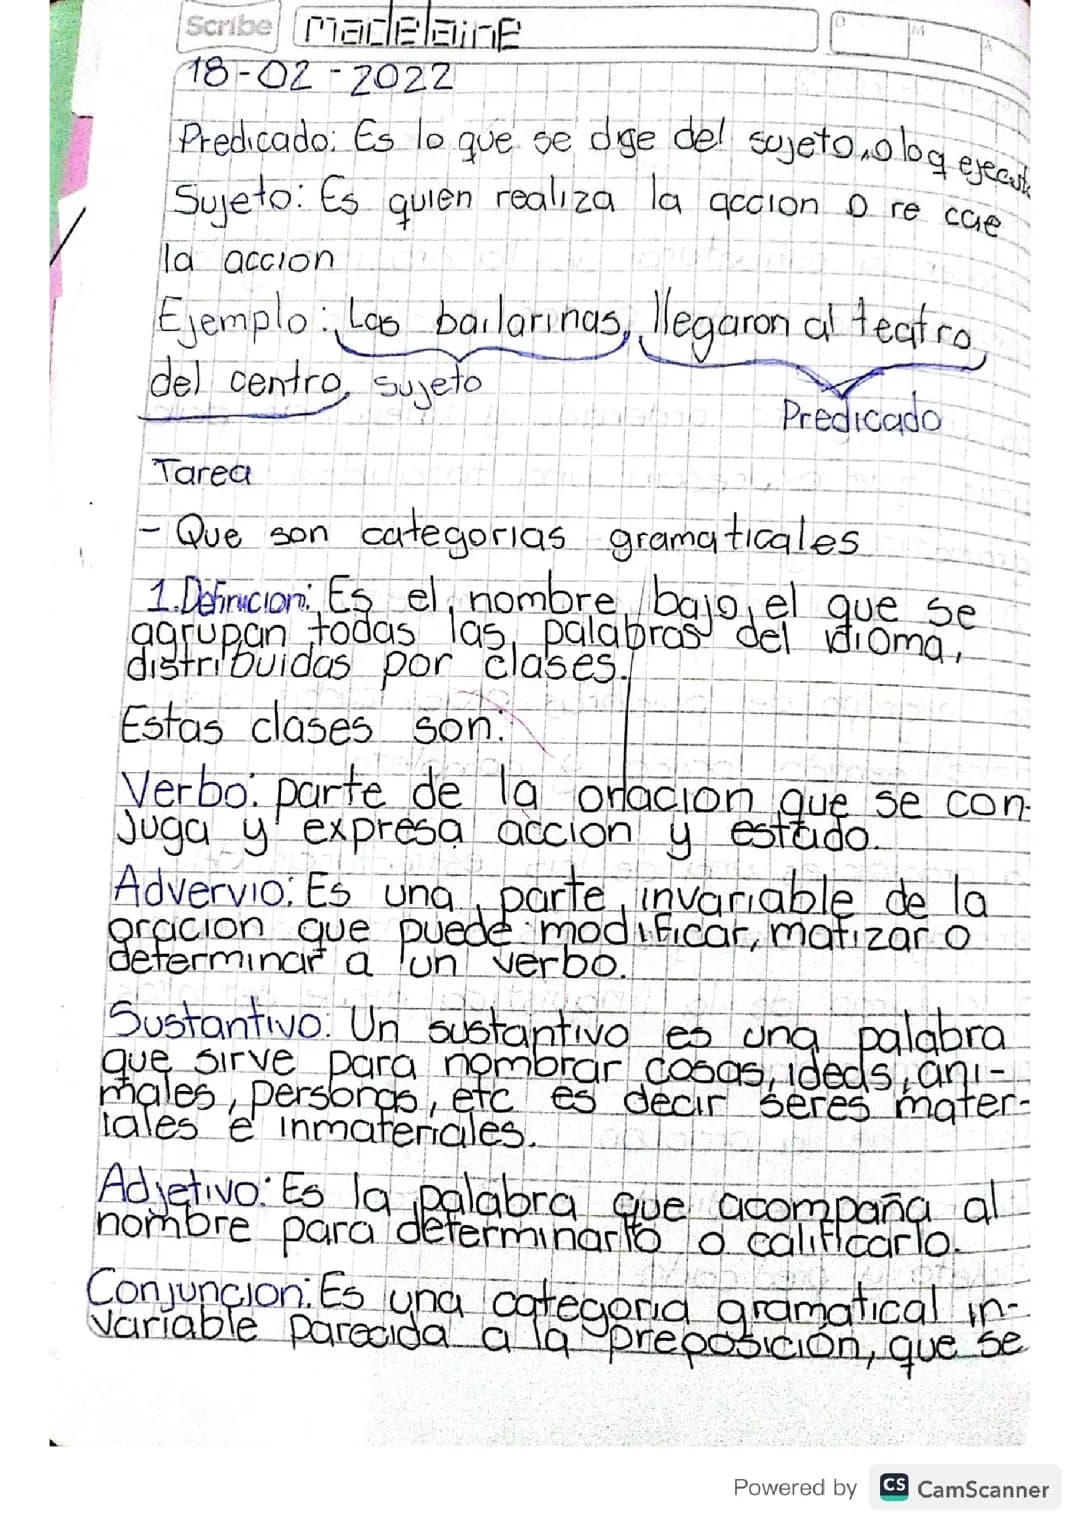 Scribe madelaine D M A
18-02-2022
Predicado: Es lo que se dige del sujeto, o loq ejecuta
Sujeto: Es quien realiza la accion o re cae
la accion
Ejemplo: Las bailarinas, llegaron al teatro
del centro. sujeto
Predicado
Tarea
- Que son categorias gramaticales
1. Definicion: Es el nombre bajo el que se
agrupan todas las palabras del idioma,
distribuidas por clases.
Estas clases son:
Verbo: parte de la oracion que se con-
juga y expresa accion y estado.
Advervio: Es una parte invariable de la
oracion que puede modificar, matizar o
determinar a un verbo.
Sustantivo: Un sustantivo es una palabra
que sirve para nombrar cosas, ideas, ani-
males, personas, etc es decir seres mater-
iales e inmateriales.
Adjetivo: Es la palabra que acompaña al
nombre para determinarlo o calificarlo.
Conjuncion: Es una categoria gramatical in-
variable parecida a la preposición, que se
Powered by CS CamScanner